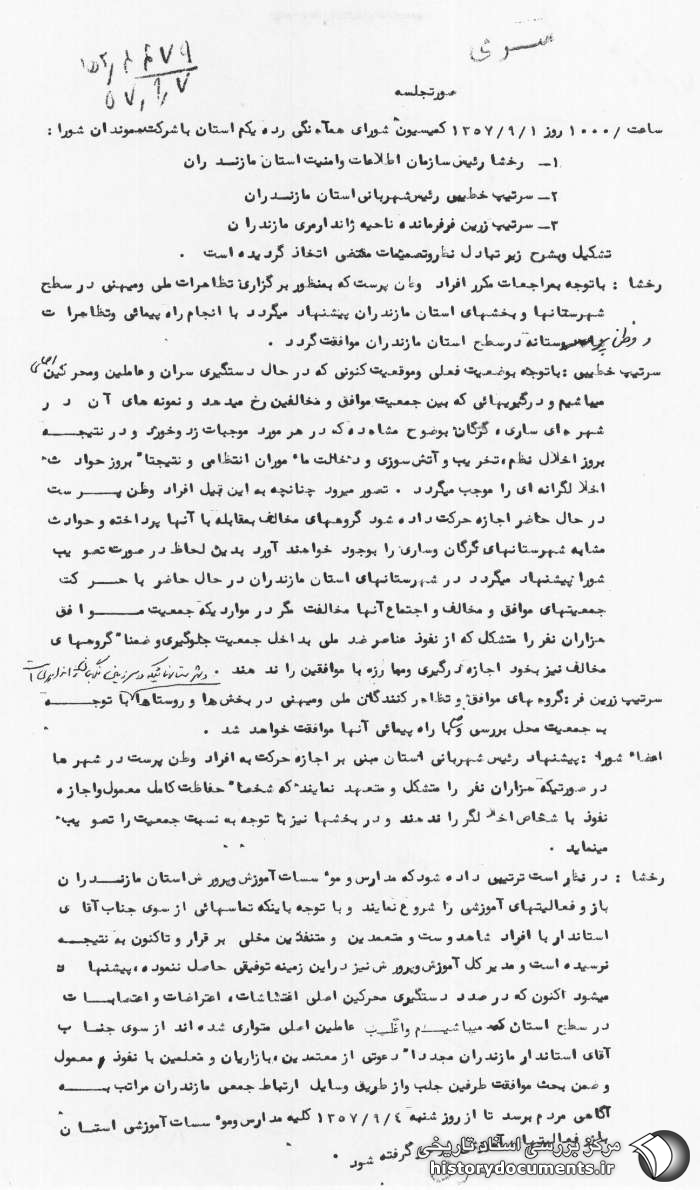 سری
۱۵۲/۸۶۷۹
۵۷/۹/۷
صورتجلسه
ساعت /۱۰۰۰ روز ۱۳۵۷/۹/۱ کمیسیون شورای هماهنگی رده یکم استان با شرکت عموندان شورا :
۱ــ رخشا رئیس سازمان اطلاعات وامنیت استان مازنسد ران
۲ــ سرتیپ خطیبی رئیس شهربانی استان مازنسدران
۳ــ سرتیپ زرین فرفرمانده ناحیه ژاندارمری مازندرا ن
تشکیل وبشرح زیر تبادل نظروتصمیمات مقتضی اتخاذ گردیده است .
رخشا : باتوجه بمراجعات مکرر افراد وطن پرست که بمنظور برگزاری تظاهرات ملی ومیهنی در سطح
شهرستانها و بخشهای استان مازندران پیشنهاد میگردد با انجام راه پیمائی وتظاهرا ت
وطن پرستانه درسطح استان مازندران موافقت گردد .
سرتیپ خطیبی : باتوجه بوضعیت فعلی وموقعیت کنونی که در حال دستگیری سران و عاملین ومحرکین اصلی
میباشیم و درگیریهائی که بین جمعیت موافق و مخالفین رخ میدهد و نمونه های آن د ر
شهرهای ساری، گرگان بوضوح مشاهده که در هر مورد موجبات زدوخورد و در نتیجــه
بروز اخلال نظم، تخریب و آتش سوزی و دخالت ماموران انتظامی و نتیجتا" بروز حواد ث
اخلالگرانه ای را موجب میگردد . تصور میرود چنانچه به این قبیل افراد وطن پــرست
در حال حاضر اجازه حرکت داده شود گروههای مخالف بمقابله با آنها پرداخته و حوادث
مشابه شهرستانهای گرگان وساری را بوجود خواهند آورد بدین لحاظ در صورت تصویب
شورا پیشنهاد میگردد در شهرستانهای استان مازندران در حال حاضر با حــرکت
جمعیتهای موافق و مخالف و اجتماع آنها مخالفت مگر در مواردیکه جمعیت مــوافق
هزاران نفر را متشکل که از نفوذ عناصر ضد ملی بداخل جمعیت جلوگیری و ضمنا" گروههای
مخالف نیز بخود اجازه درگیری ومبارزه با موافقین را ند هند .
سرتیپ زرین فر : گروه های موافق و تظاهر کنندگان ملی ومیهنی در بخش ها و روستاها با توجـــه
به جمعیت محل بررسی و با راه پیمائی آنها موافقت خواهد شد .
اعضاء شورا : پیشنهاد رئیس شهربانی استان مبنی بر اجازه حرکت به افراد وطن پرست در شهر ها
در صورتیکه هزاران نفر را متشکل و متعهد نمایند که شخصا" حفاظت کامل معمول واجازه
نفوذ با شخاص اخلالگر را ندهند و در بخشها نیز با توجه به نسبت جمعیت را تصویب
مینماید .
رخشا : در نظر است ترتیبی داده شود که مدارس و موسسات آموزش وپرورش استان مازنــدران
باز و فعالیتهای آموزشی را شروع نمایند و با توجه باینکه تماسهائی از سوی جناب آقای
استاندار با افراد شاهدوست و متعمدین و متنفذین محلی بر قرار و تاکنون به نتیجــه
نرسیده است و مدیر کل آموزش وپرورش نیز دراین زمینه توفیقی حاصل ننموده، پیشنها د
میشود اکنون که در صدد دستگیری محرکین اصلی اغتشاشات، اعتراضات و اعتصابــات
در سطح استان که میباشیم واغلب عاملین اصلی متواری شده اند از سوی جنا ب
آقای استاندار مازندران مجددا" دعوتی از معتمدین، بازاریان و معلمین با نفوذ معمول
و ضمن بحث موافقت طرفین جلب واز طریق وسایل ارتباط جمعی مازندران مراتب بــه
آگاهی مردم برسد تا از روز شنبه ۱۳۵۷/۹/۴ کلیه مدارس وموسسات آموزشی استـان
باز و فعالیتهای گرفته شود
مرکز بررسی اسناد تاریخی
historydocuments.ir